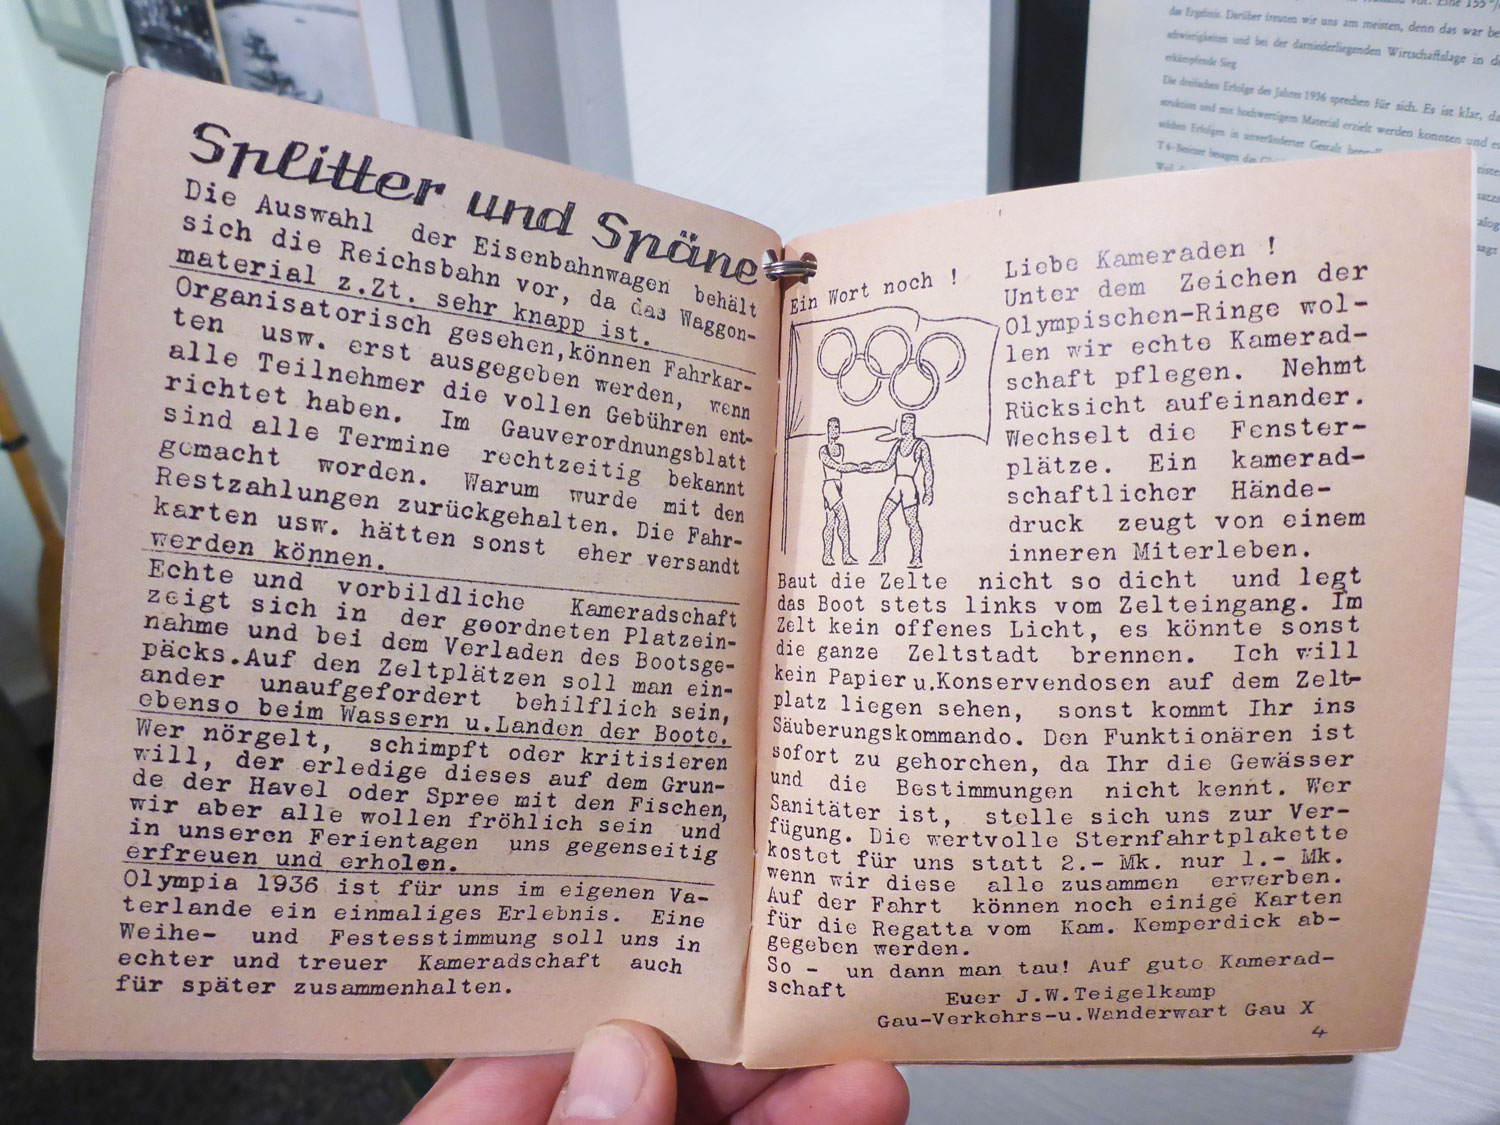 Splitter und Späne
Die Auswahl der Eisenbahnwagen behält
sich die Reichsbahn vor, da das Waggon-
material z.Zt. sehr knapp ist.
Organisatorisch gesehen, können Fahrkar-
ten usw. erst ausgegeben werden, wenn
alle Teilnehmer die vollen Gebühren ent-
richtet haben. Im Gauverordnungsblatt
sind alle Termine rechtzeitig bekannt
gemacht worden. Warum wurde mit den
Restzahlungen zurückgehalten. Die Fahr-
karten usw. hätten sonst eher versandt
werden können.
Echte und vorbildliche Kameradschaft
zeigt sich in der geordneten Platzein-
nahme und bei dem Verladen des Bootsge-
päcks. Auf den Zeltplätzen soll man ein-
ander unaufgefordert behilflich sein,
ebenso beim Wassern u. Landen der Boote.
Wer nörgelt, schimpft oder kritisieren
will, der erledige dieses auf dem Grun-
de der Havel oder Spree mit den Fischen,
wir aber alle wollen fröhlich sein und
in unseren Ferientagen uns gegenseitig
erfreuen und erholen.
Olympia 1936 ist für uns im eigenen Va-
terlande ein einmaliges Erlebnis. Eine
Weihe- und Festesstimmung soll uns in
echter und treuer Kameradschaft auch
für später zusammenhalten.
Ein Wort noch !
Liebe Kameraden !
Unter dem Zeichen der
Olympischen-Ringe wol-
len wir echte Kamerad-
schaft pflegen. Nehmt
Rücksicht aufeinander.
Wechselt die Fenster-
plätze. Ein kamerad-
schaftlicher Hände-
druck zeugt von einem
inneren Miterleben.
Baut die Zelte nicht so dicht und legt
das Boot stets links vom Zelteingang. Im
Zelt kein offenes Licht, es könnte sonst
die ganze Zeltstadt brennen. Ich will
kein Papier u. Konservendosen auf dem Zelt-
platz liegen sehen, sonst kommt Ihr ins
Säuberungskommando. Den Funktionären ist
sofort zu gehorchen, da Ihr die Gewässer
und die Bestimmungen nicht kennt. Wer
Sanitäter ist, stelle sich uns zur Ver-
fügung. Die wertvolle Sternfahrtplakette
kostet für uns statt 2.- Mk. nur 1.- Mk.
wenn wir diese alle zusammen erwerben.
Auf der Fahrt können noch einige Karten
für die Regatta vom Kam. Kemperdick ab-
gegeben werden.
So - un dann man tau! Auf gute Kamerad-
schaft
Euer J.W. Teigelkamp
Gau-Verkehrs-u. Wanderwart Gau X
4
das Ergebnis. Darüber freuten wir uns am meisten, denn das war be
schwierigkeiten und bei der darniederliegenden Wirtschaftslage in d
erkämpfende Sieg
Die dreifachen Erfolge des Jahres 1936 sprechen für sich. Es ist klar, da
struktion und mit hochwertigem Material erzielt werden konnten und es
solchen Erfolgen in unveränderter Gestalt
T 6-Besitzer besagen das